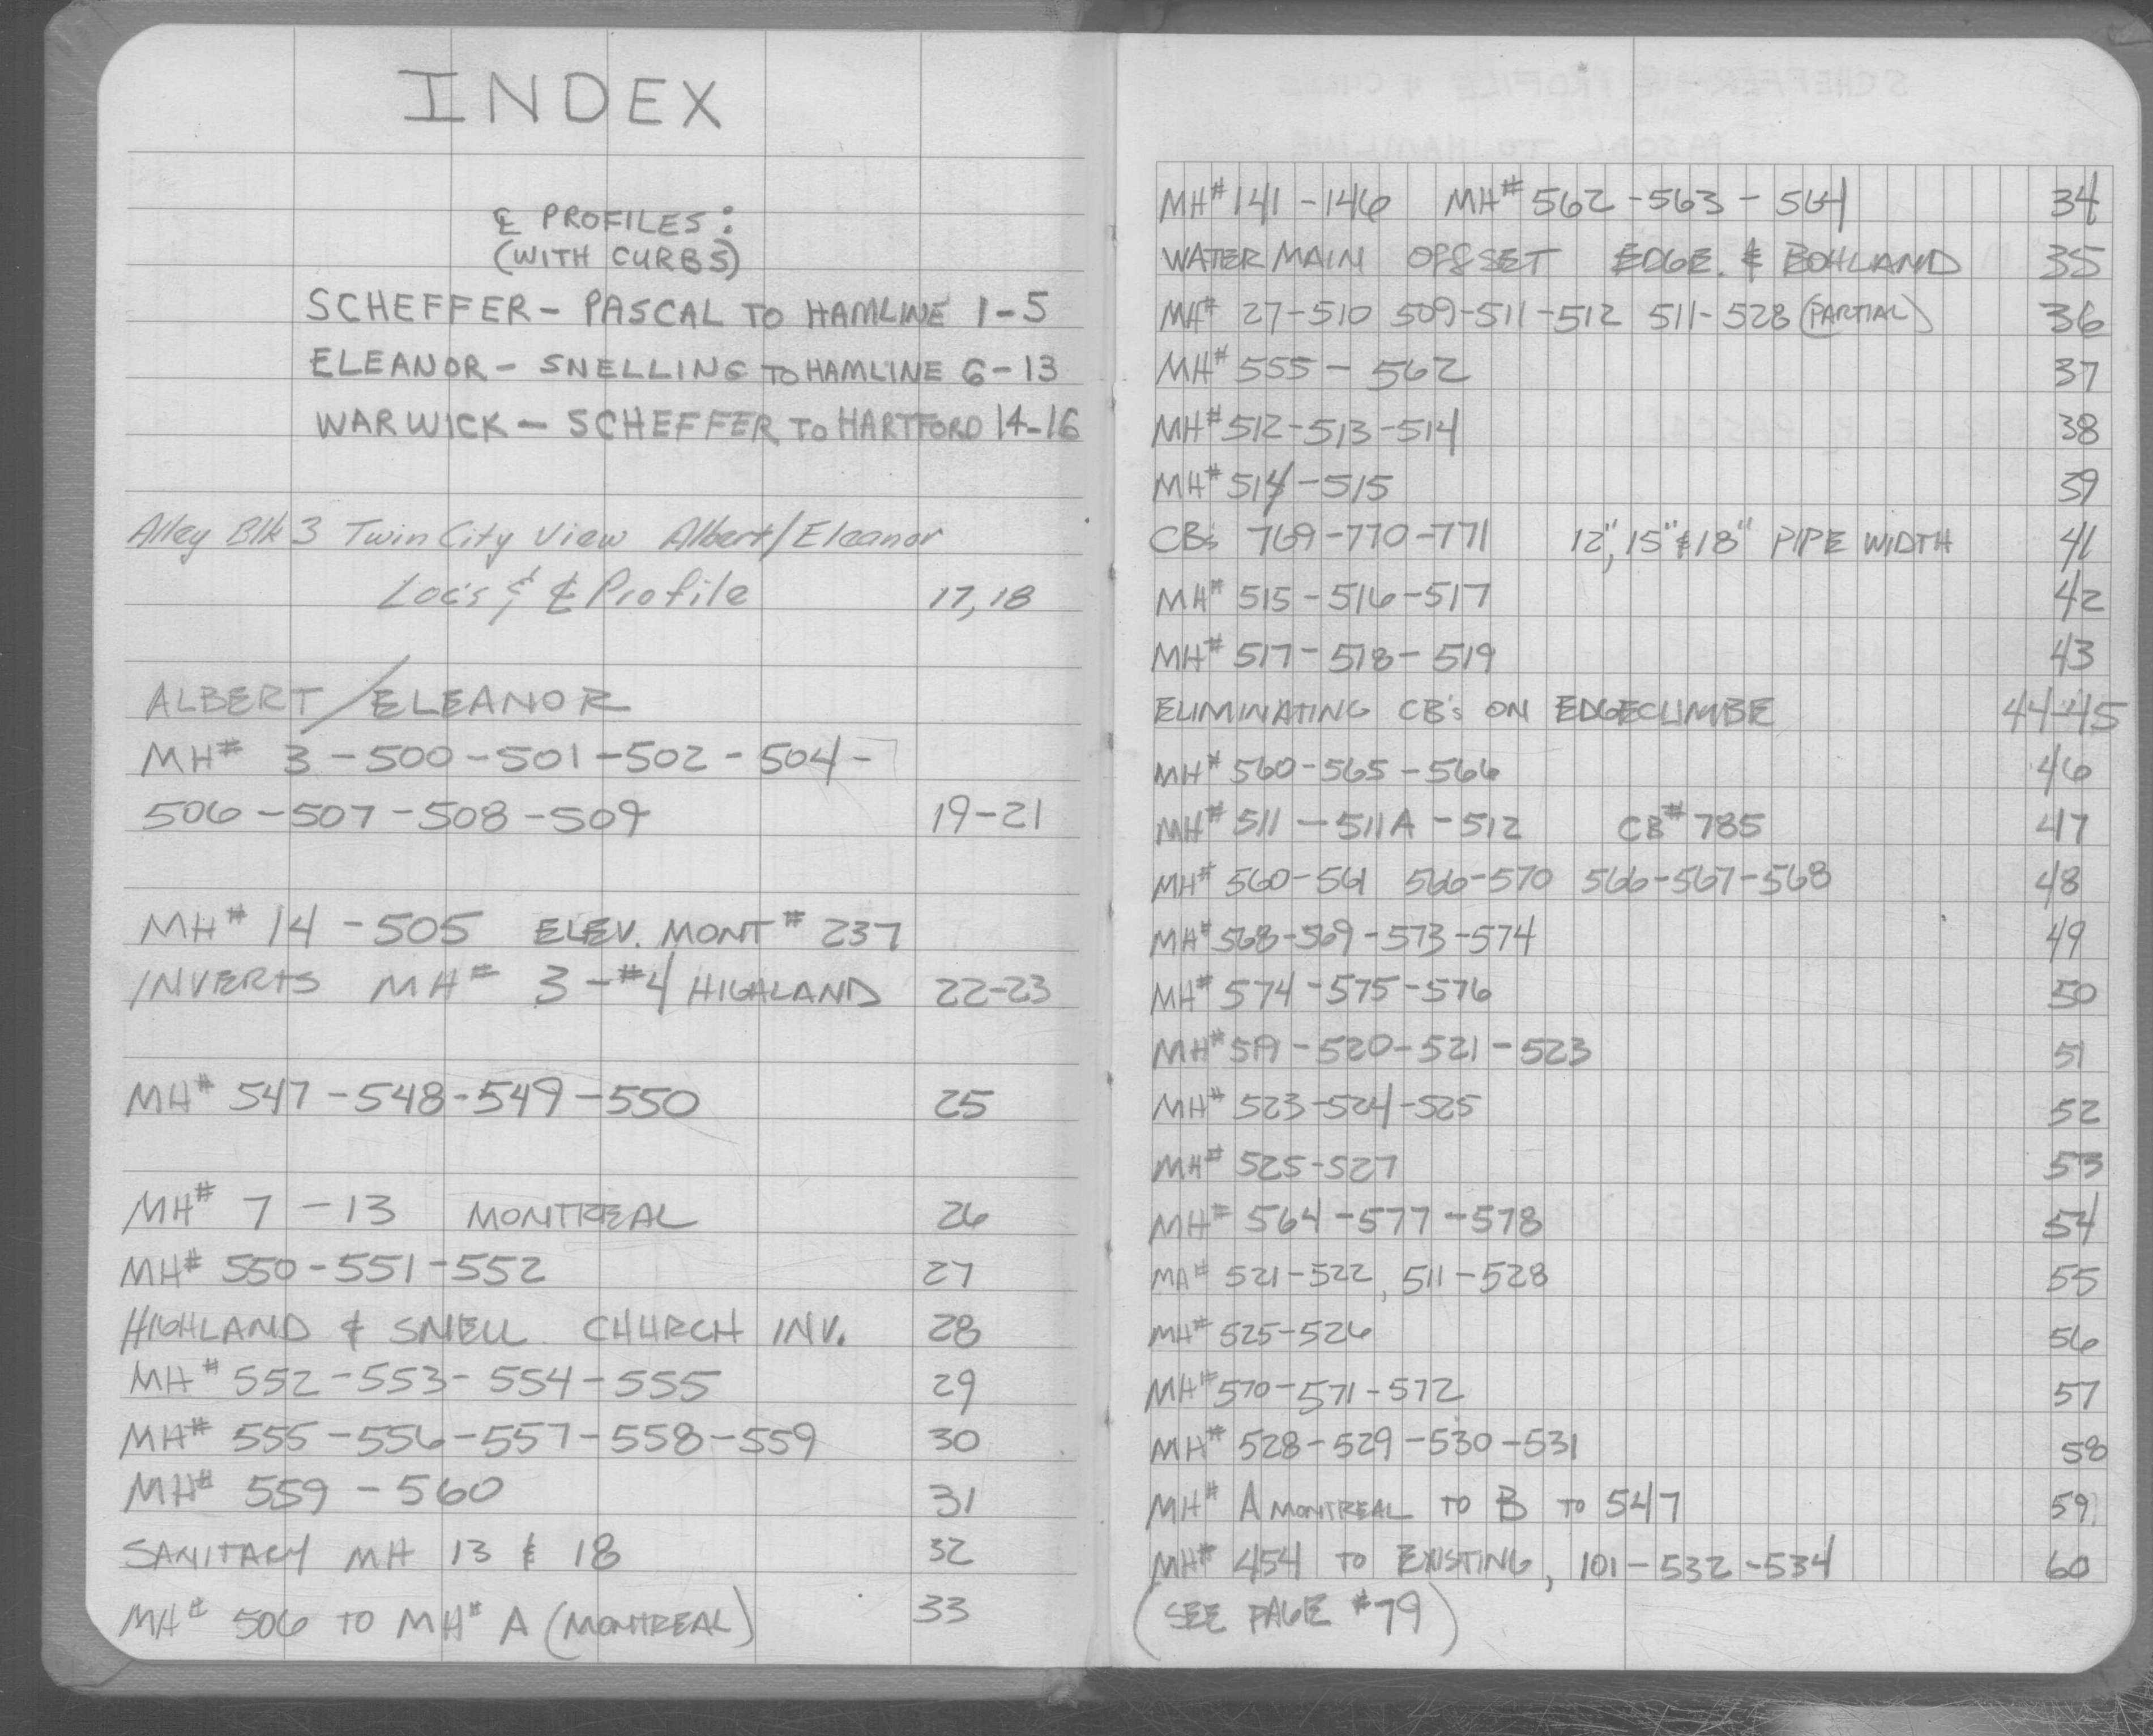 INDEX
℄ PROFILES:
(WITH CURBS)
SCHEFFER - PASCAL TO HAMLINE 1-5
ELEANOR - SNELLING TO HAMLINE 6-13
WARWICK - SCHEFFER TO HARTFORD 14-16
Alley Blk 3 Twin City View Albert/Eleanor
Loc's & ℄ Profile 17,18
ALBERT/ELEANOR
MH# 3-500-501-502-504-
506-507-508-509 19-21
MH# 14-505 ELEV. MONT# 237
INVERTS MH# 3-#4 HIGHLAND 22-23
MH# 547-548-549-550 25
MH# 7-13 MONTREAL 26
MH# 550-551-552 27
HIGHLAND & SNELL CHURCH INV. 28
MH# 552-553-554-555 29
MH# 555-556-557-558-559 30
MH# 559-560 31
SANITARY MH 13 & 18 32
MH# 506 TO MH# A (MONTREAL) 33
MH# 141-146 MH# 562-563-564 34
WATER MAIN OFFSET EDGE. & BOHLAND 35
MH# 27-510 509-511-512 511-528 (PARTIAL) 36
MH# 555-562 37
MH# 512-513-514 38
MH# 514-515 39
CB's 769-770-771 12", 15" & 18" PIPE WIDTH 41
MH# 515-516-517 42
MH# 517-518-519 43
ELIMINATING CB's ON EDGECUMBE 44-45
MH# 560-565-566 46
MH# 511-511A-512 CB# 785 47
MH# 560-561 566-570 566-567-568 48
MH# 568-569-573-574 49
MH# 574-575-576 50
MH# 519-520-521-523 51
MH# 523-524-525 52
MH# 525-527 53
MH# 564-577-578 54
MH# 521-522, 511-528 55
MH# 525-526 56
MH# 570-571-572 57
MH# 528-529-530-531 58
MH# A MONTREAL TO B TO 547 59
MH# 454 TO EXISTING, 101-532-534 60
(SEE PAGE #79)